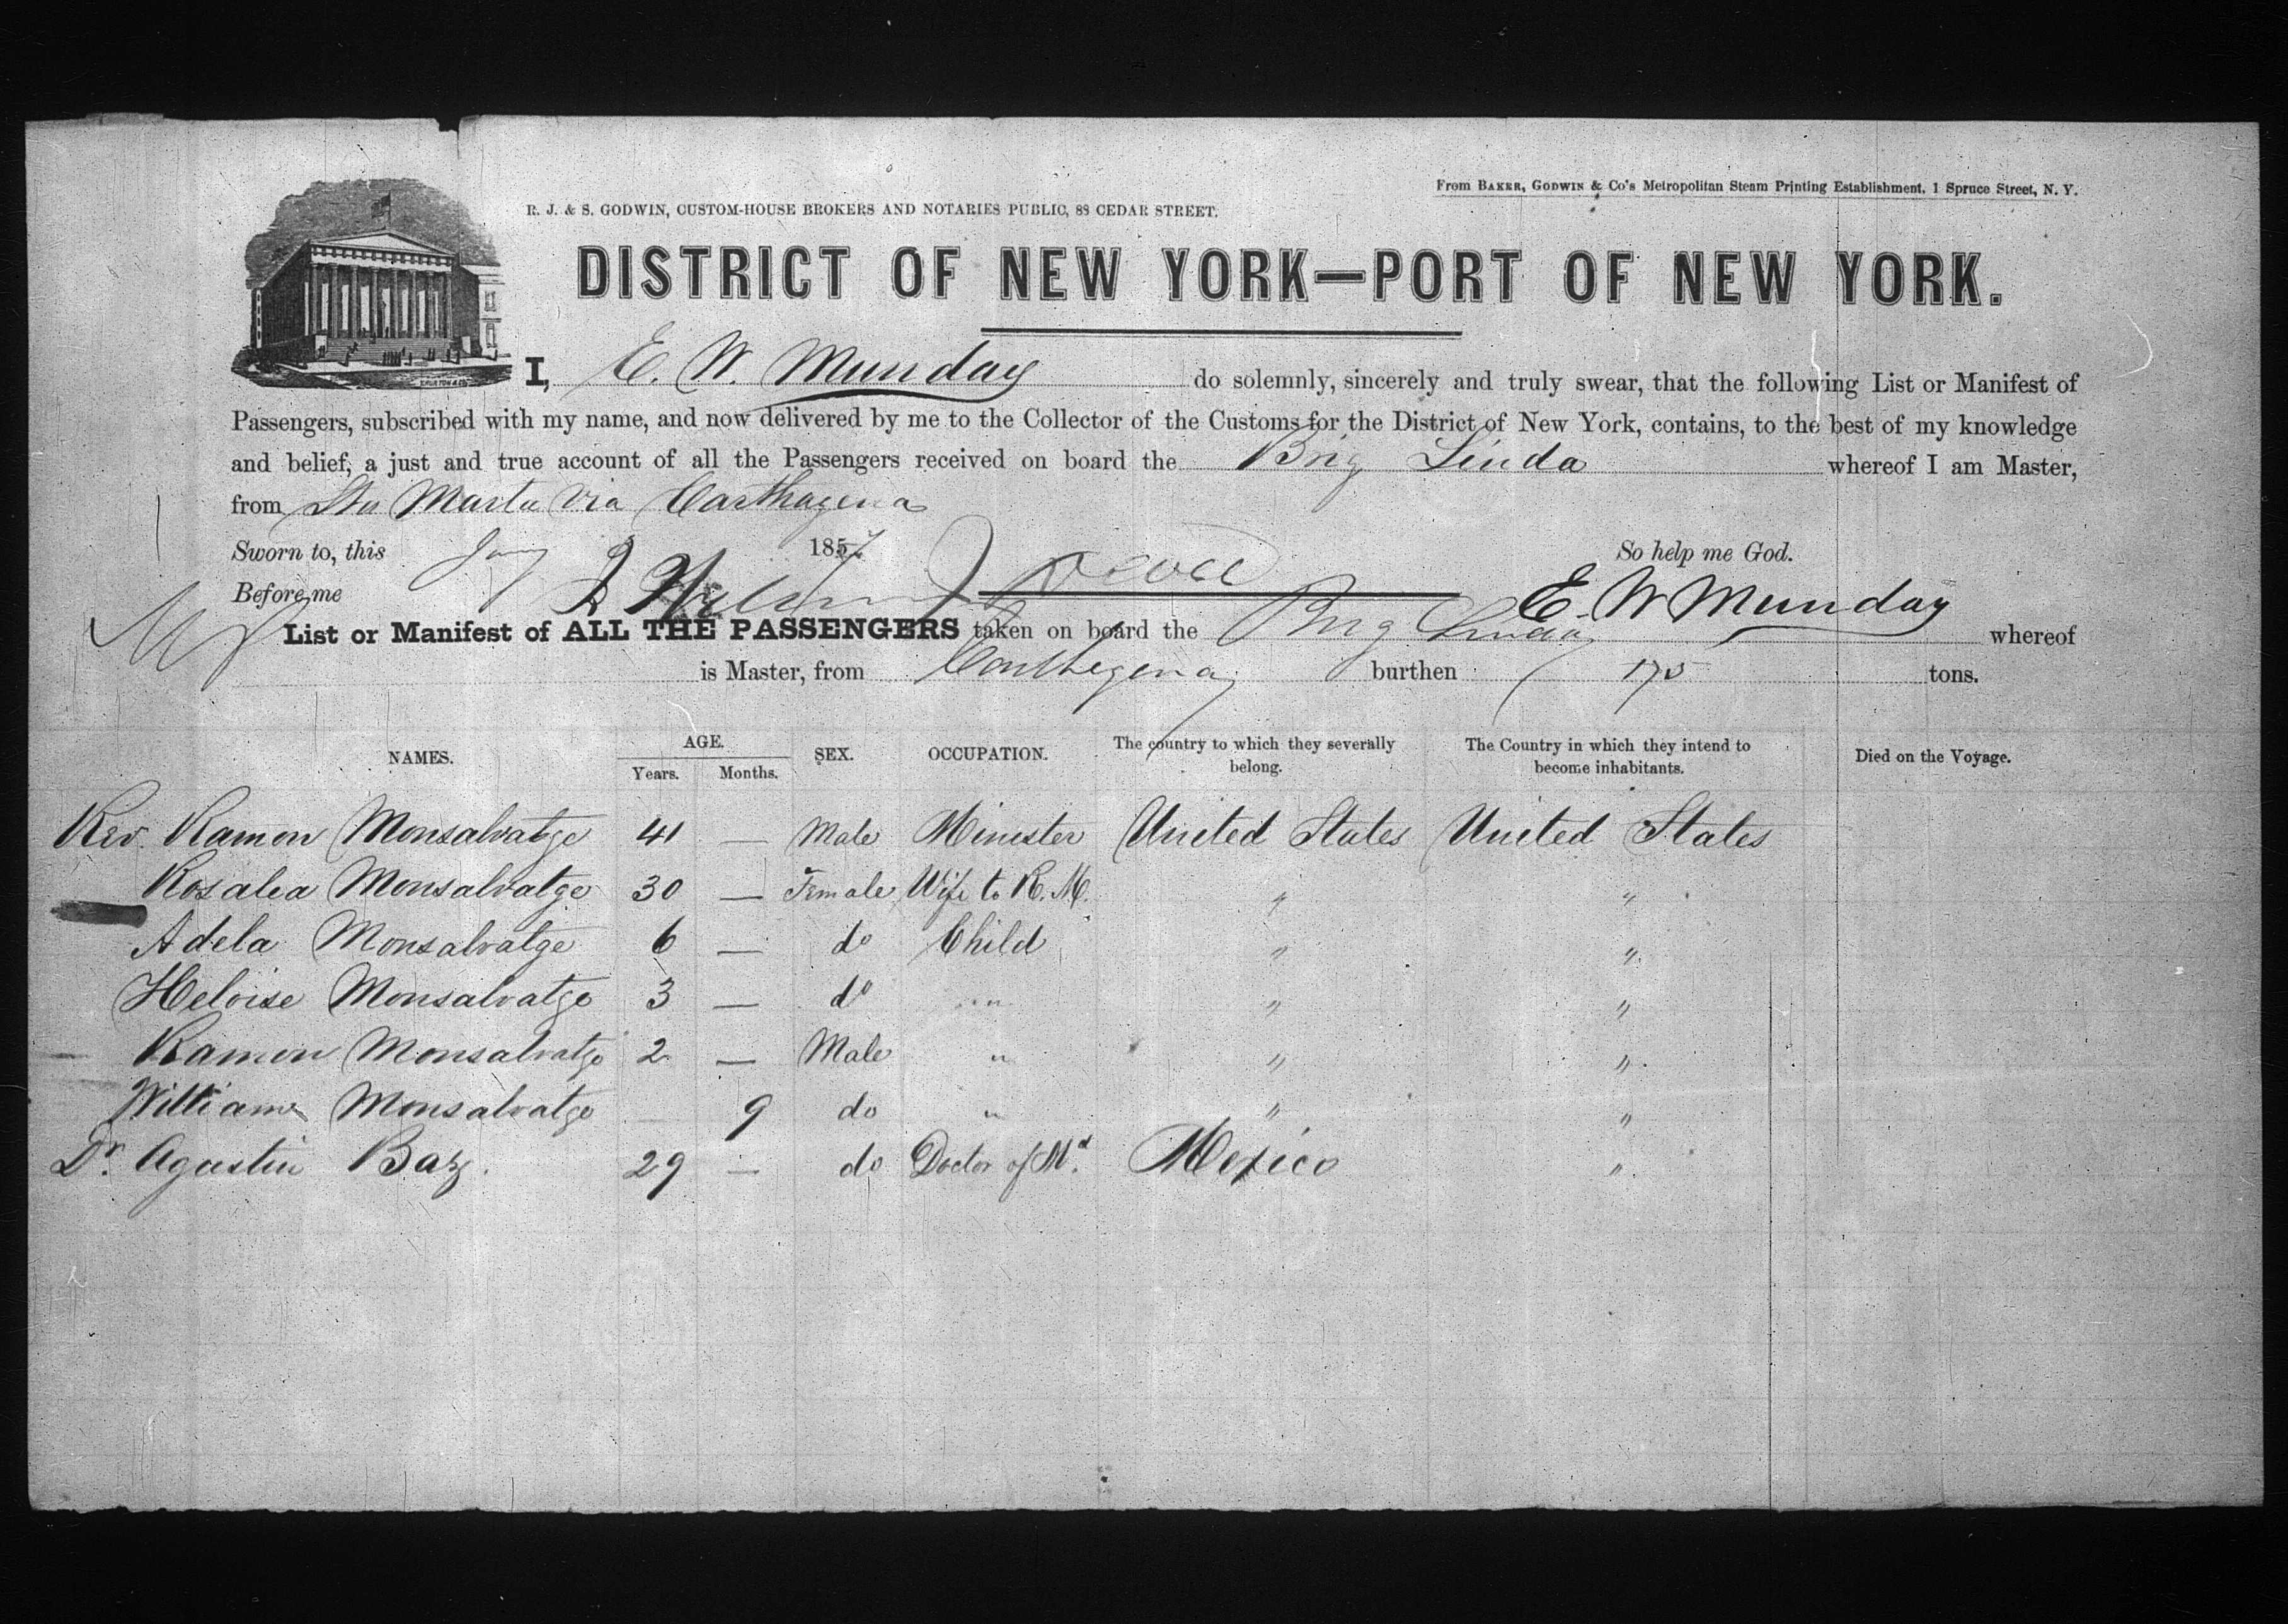 From BAKER, GODWIN & Co's Metropolitan Steam Printing Establishment, 1 Spruce Street, N. Y.
R. J. & S. GODWIN, CUSTOM-HOUSE BROKERS AND NOTARIES PUBLIC, 88 CEDAR STREET.
DISTRICT OF NEW YORK—PORT OF NEW YORK.
I, E. W. Munday do solemnly, sincerely and truly swear, that the following List or Manifest of
Passengers, subscribed with my name, and now delivered by me to the Collector of the Customs for the District of New York, contains, to the best of my knowledge
and belief, a just and true account of all the Passengers received on board the Brig Linda whereof I am Master,
from Sta Marta via Carthagena
Sworn to, this Jany 1857 So help me God.
Before me E. W Munday
List or Manifest of ALL THE PASSENGERS taken on board the Brig Linda whereof
is Master, from Carthegena burthen 175 tons.
NAMES. AGE. Years. Months. SEX. OCCUPATION. The country to which they severally belong. The Country in which they intend to become inhabitants. Died on the Voyage.
Rev. Ramon Monsalvatge 41 — Male Minister United States United States
Rosalea Monsalvatge 30 — Female Wife to R. M. " "
Adela Monsalvatge 6 — do Child " "
Heloise Monsalvatge 3 — do " " "
Ramon Monsalvatge 2 — Male " " "
William Monsalvatge 9 do " " "
Dr. Agustin Baz. 29 — do Doctor of Md. Mexico "